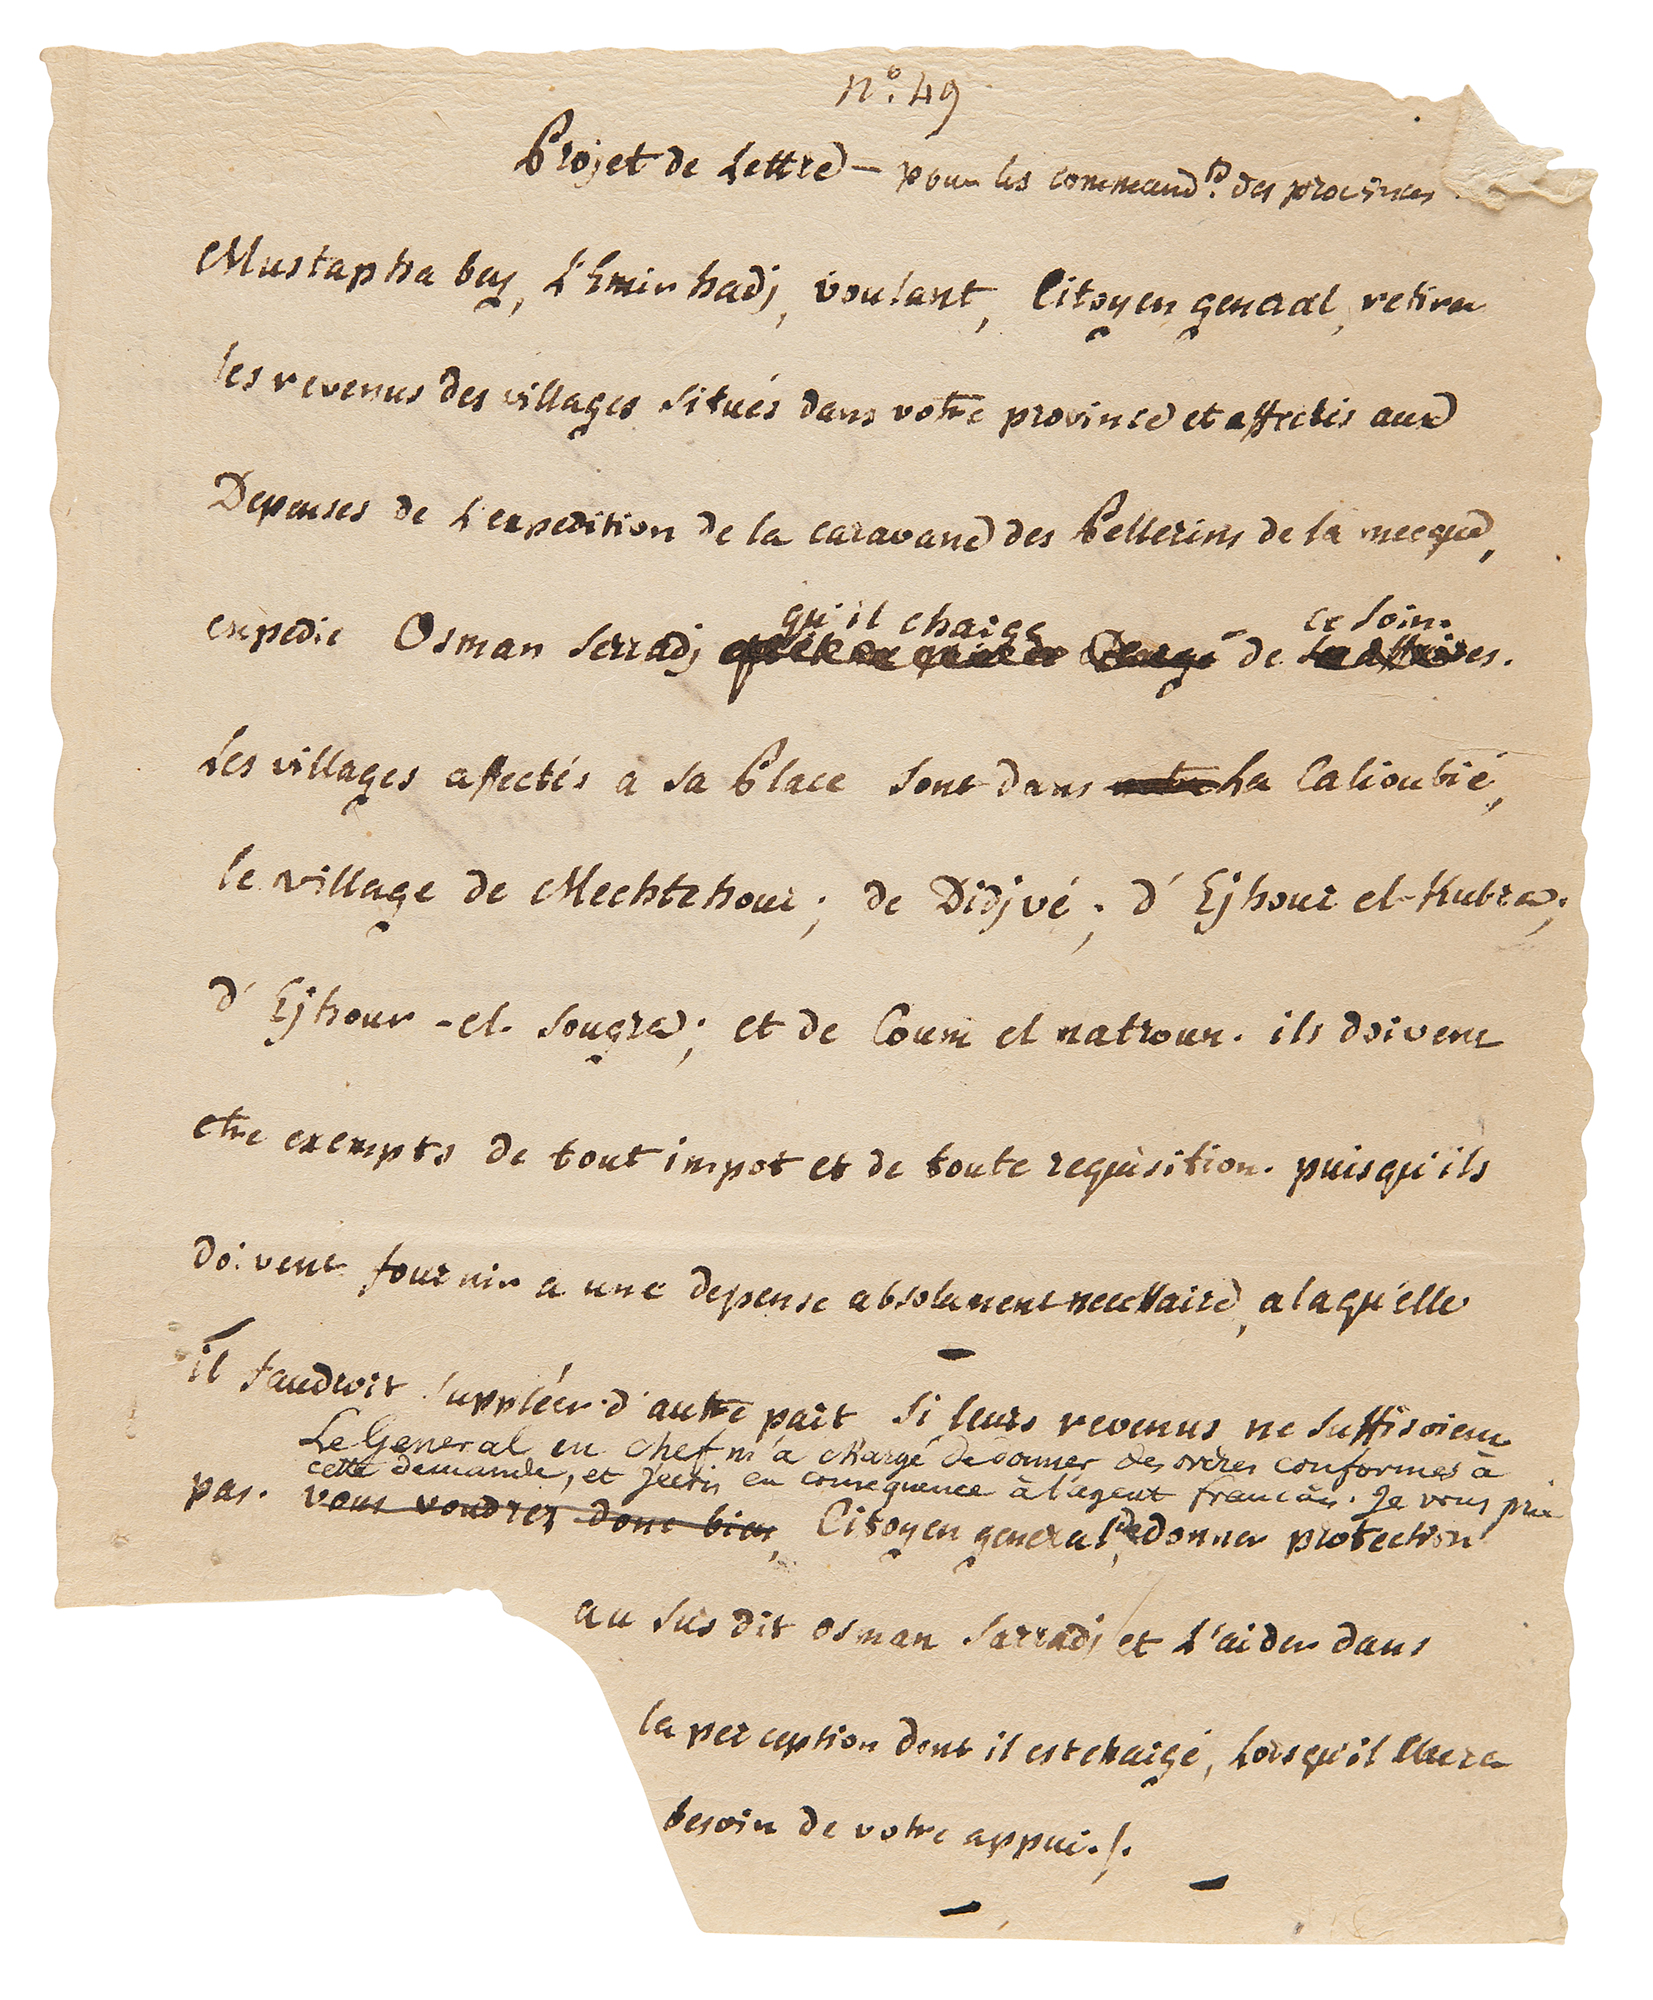 n.º 49
Projet de Lettre — pour les command.ts des provinces
Mustapha bey, L'Emir hadj, voulant, Citoyen general, retirer
les revenus des villages situés dans votre province et affectés aux
Depenses de L'expedition de la caravane des Pellerins de la mecque,
qu'il charge ce soin.
expedie Osman Serradj chargé de ses affaires.
Les villages affectés a sa Place sont dans La Calioubié,
le village de Mechtehour; de Didjvé; d'Ejhour el-Kubra;
d'Ejhour-el-Sougra; et de Coum el natroun. ils doivent
etre exempts de tout impot et de toute requisition. puisqu'ils
doivent fournir a une depense absolument necessaire, a laqu'elle
il faudroit suppléer d'autre part si leurs revenus ne suffisoient
Le General en chef m'a chargé de donner des ordres conformes à
cette demande, et j'ecris en consequence à l'agent francais. Je vous prie
pas. vous voudrez donc bien, Citoyen general, de donner protection
au susdit osman Sarradj et L'aider dans
la perception dont il est chargé, Lorsqu'il aura
besoin de votre appui./.